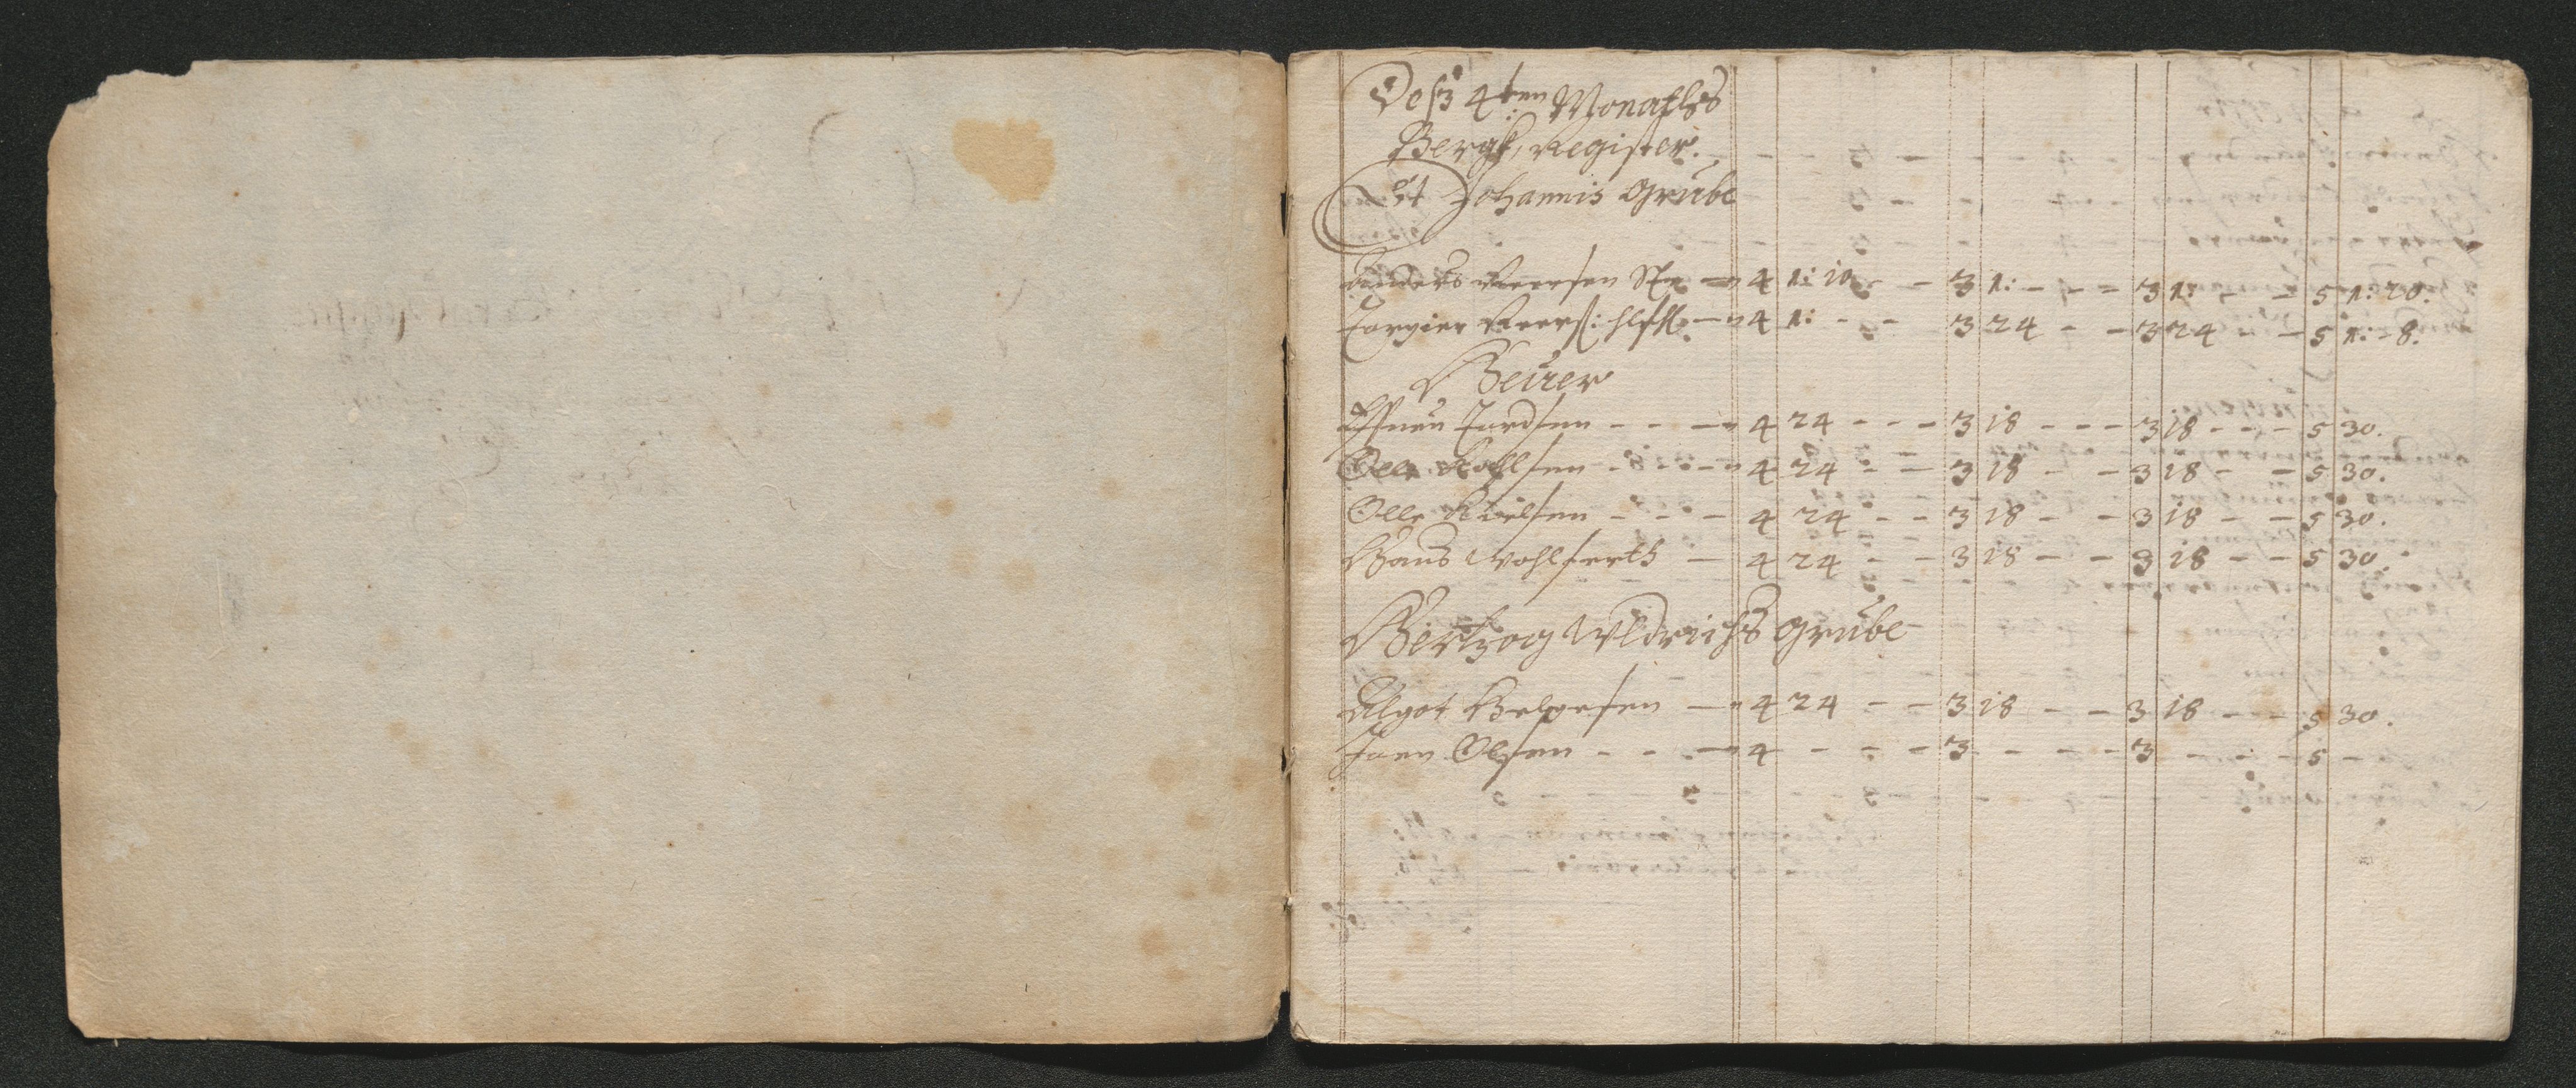 Deß 4ten Monathß
Bergk, Register.
St Johannis Grube
Anders St — 4 1: 10 – – 3 1: – – – 3 1: – – 5 1: 20.
Torgier — 4 1: – – 3 24 – – 3 24 – – 5 1: – 8.
Heüer
Tordsen – – — 4 24 – – – 3 18 – – – 3 18 – – – 5 30.
Olle – – — 4 24 – – 3 18 – – 3 18 – – 5 30.
Olle Kielsen – – – 4 24 – – 3 18 – – 3 18 – – 5 30.
Hans Wohlferth — 4 24 – – 3 18 – – 3 18 – – 5 30.
Hertzog Uldrichs Grube
Algot Helgesen — 4 24 – – 3 18 – – 3 18 – – 5 30.
Joen Olsen – – — 4 – – – 3 – – – 3 – – – 5 –